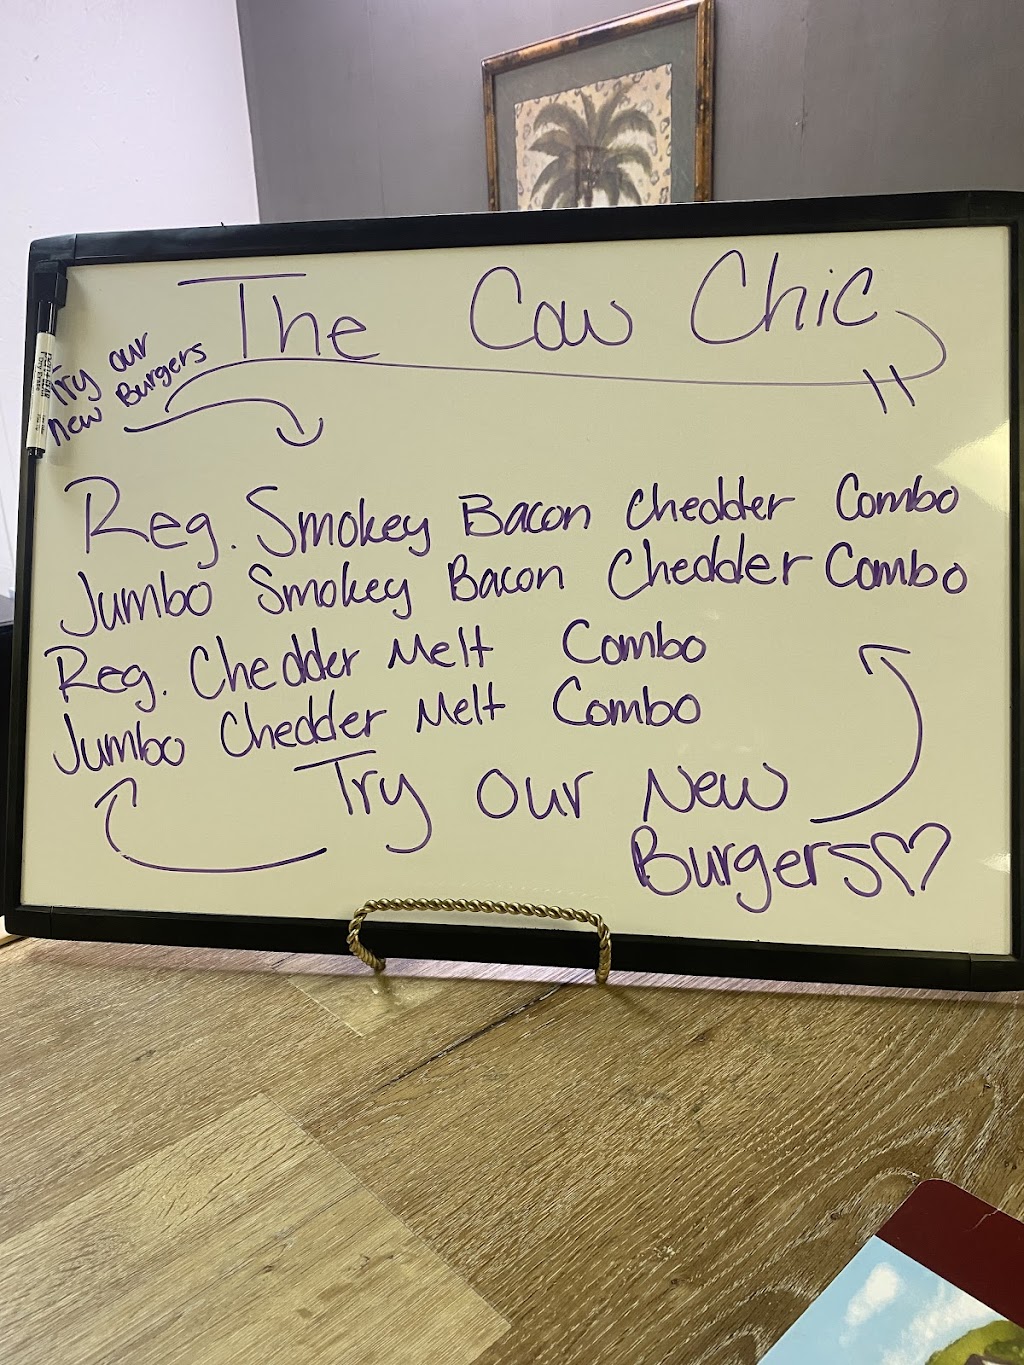 The Cow Chic
Try our
new Burgers
Reg. Smokey Bacon Chedder Combo
Jumbo Smokey Bacon Chedder Combo
Reg. Chedder Melt Combo
Jumbo Chedder Melt Combo
Try Our New
Burgers♡